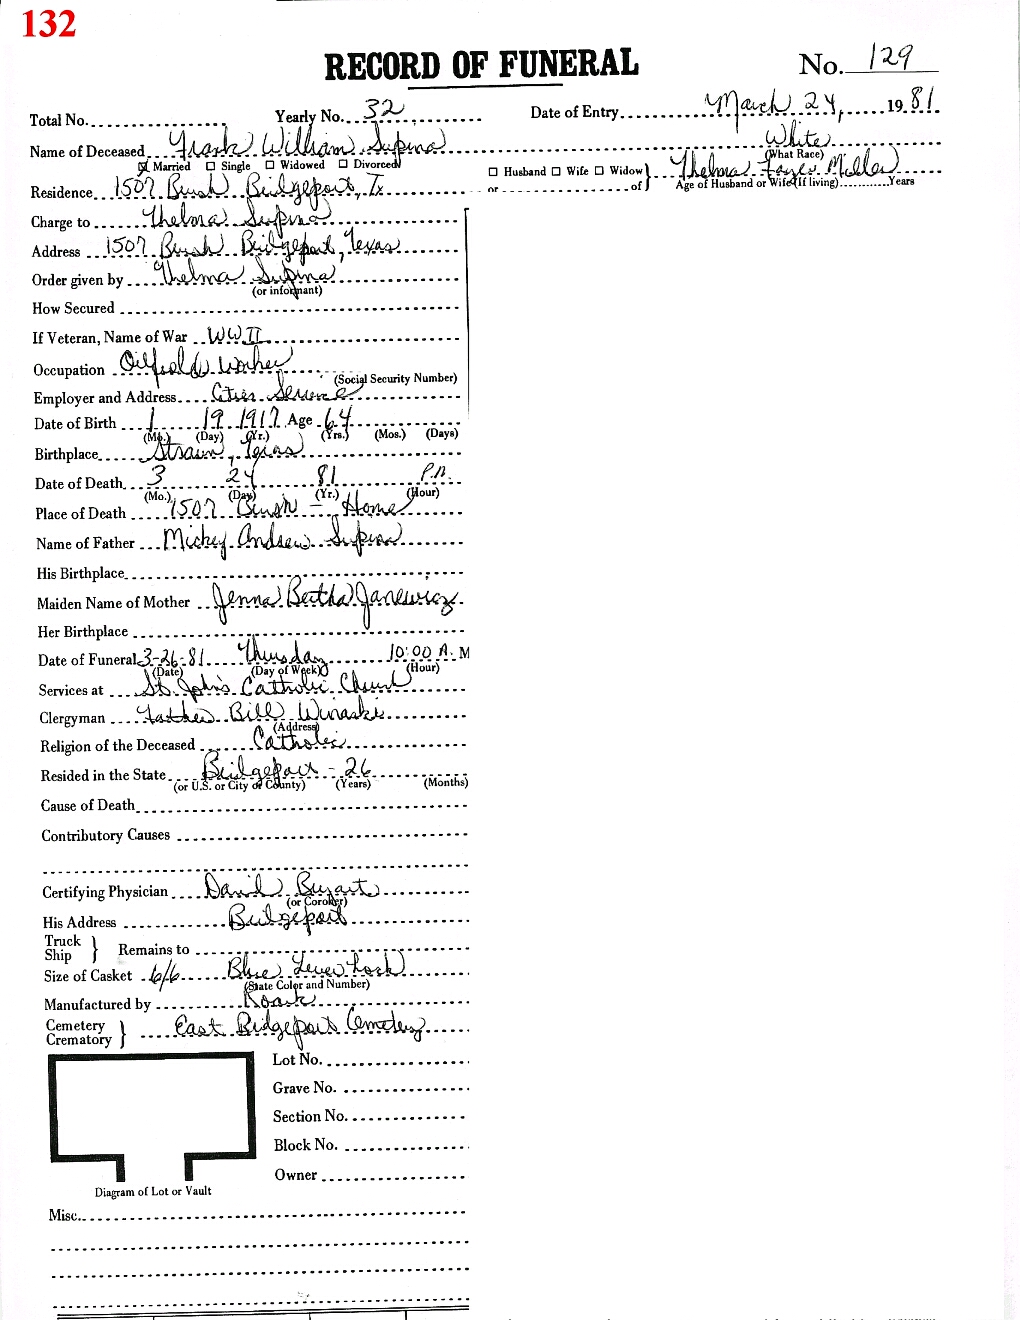 132
RECORD OF FUNERAL No. 129
Total No. Yearly No. 32 Date of Entry March 24, 1981
Name of Deceased Frank William Supina White
☒ Married ☐ Single ☐ Widowed ☐ Divorced (What Race)
☐ Husband ☐ Wife ☐ Widow } Thelma Faye Miller
Residence 1507 Bush Bridgeport, Tx or of } Age of Husband or Wife (If living) Years
Charge to Thelma Supina
Address 1507 Bush Bridgeport, Texas
Order given by Thelma Supina
(or informant)
How Secured
If Veteran, Name of War WW II
Occupation Oilfield Worker
(Social Security Number)
Employer and Address Cities Service
Date of Birth 1 19 1917 Age 64
(Mo.) (Day) (Yr.) (Yrs.) (Mos.) (Days)
Birthplace Strawn, Texas
Date of Death 3 24 81 P.M.
(Mo.) (Day) (Yr.) (Hour)
Place of Death 1507 Bush - Home
Name of Father Mickey Andrew Supina
His Birthplace
Maiden Name of Mother Jenna Bertha Janewicz
Her Birthplace
Date of Funeral 3-26-81 Thursday 10:00 A.M
(Date) (Day of Week) (Hour)
Services at St. John's Catholic Church
Clergyman Father Bill Winaski
(Address)
Religion of the Deceased Catholic
Resided in the State Bridgeport - 26
(or U.S. or City of County) (Years) (Months)
Cause of Death
Contributory Causes
Certifying Physician David Bryant
(or Coroner)
His Address Bridgeport
Truck
Ship } Remains to
Size of Casket 6/6 Blue Lever Lock
(State Color and Number)
Manufactured by Roark
Cemetery
Crematory } East Bridgeport Cemetery
Lot No.
Grave No.
Section No.
Block No.
Owner
Diagram of Lot or Vault
Misc.